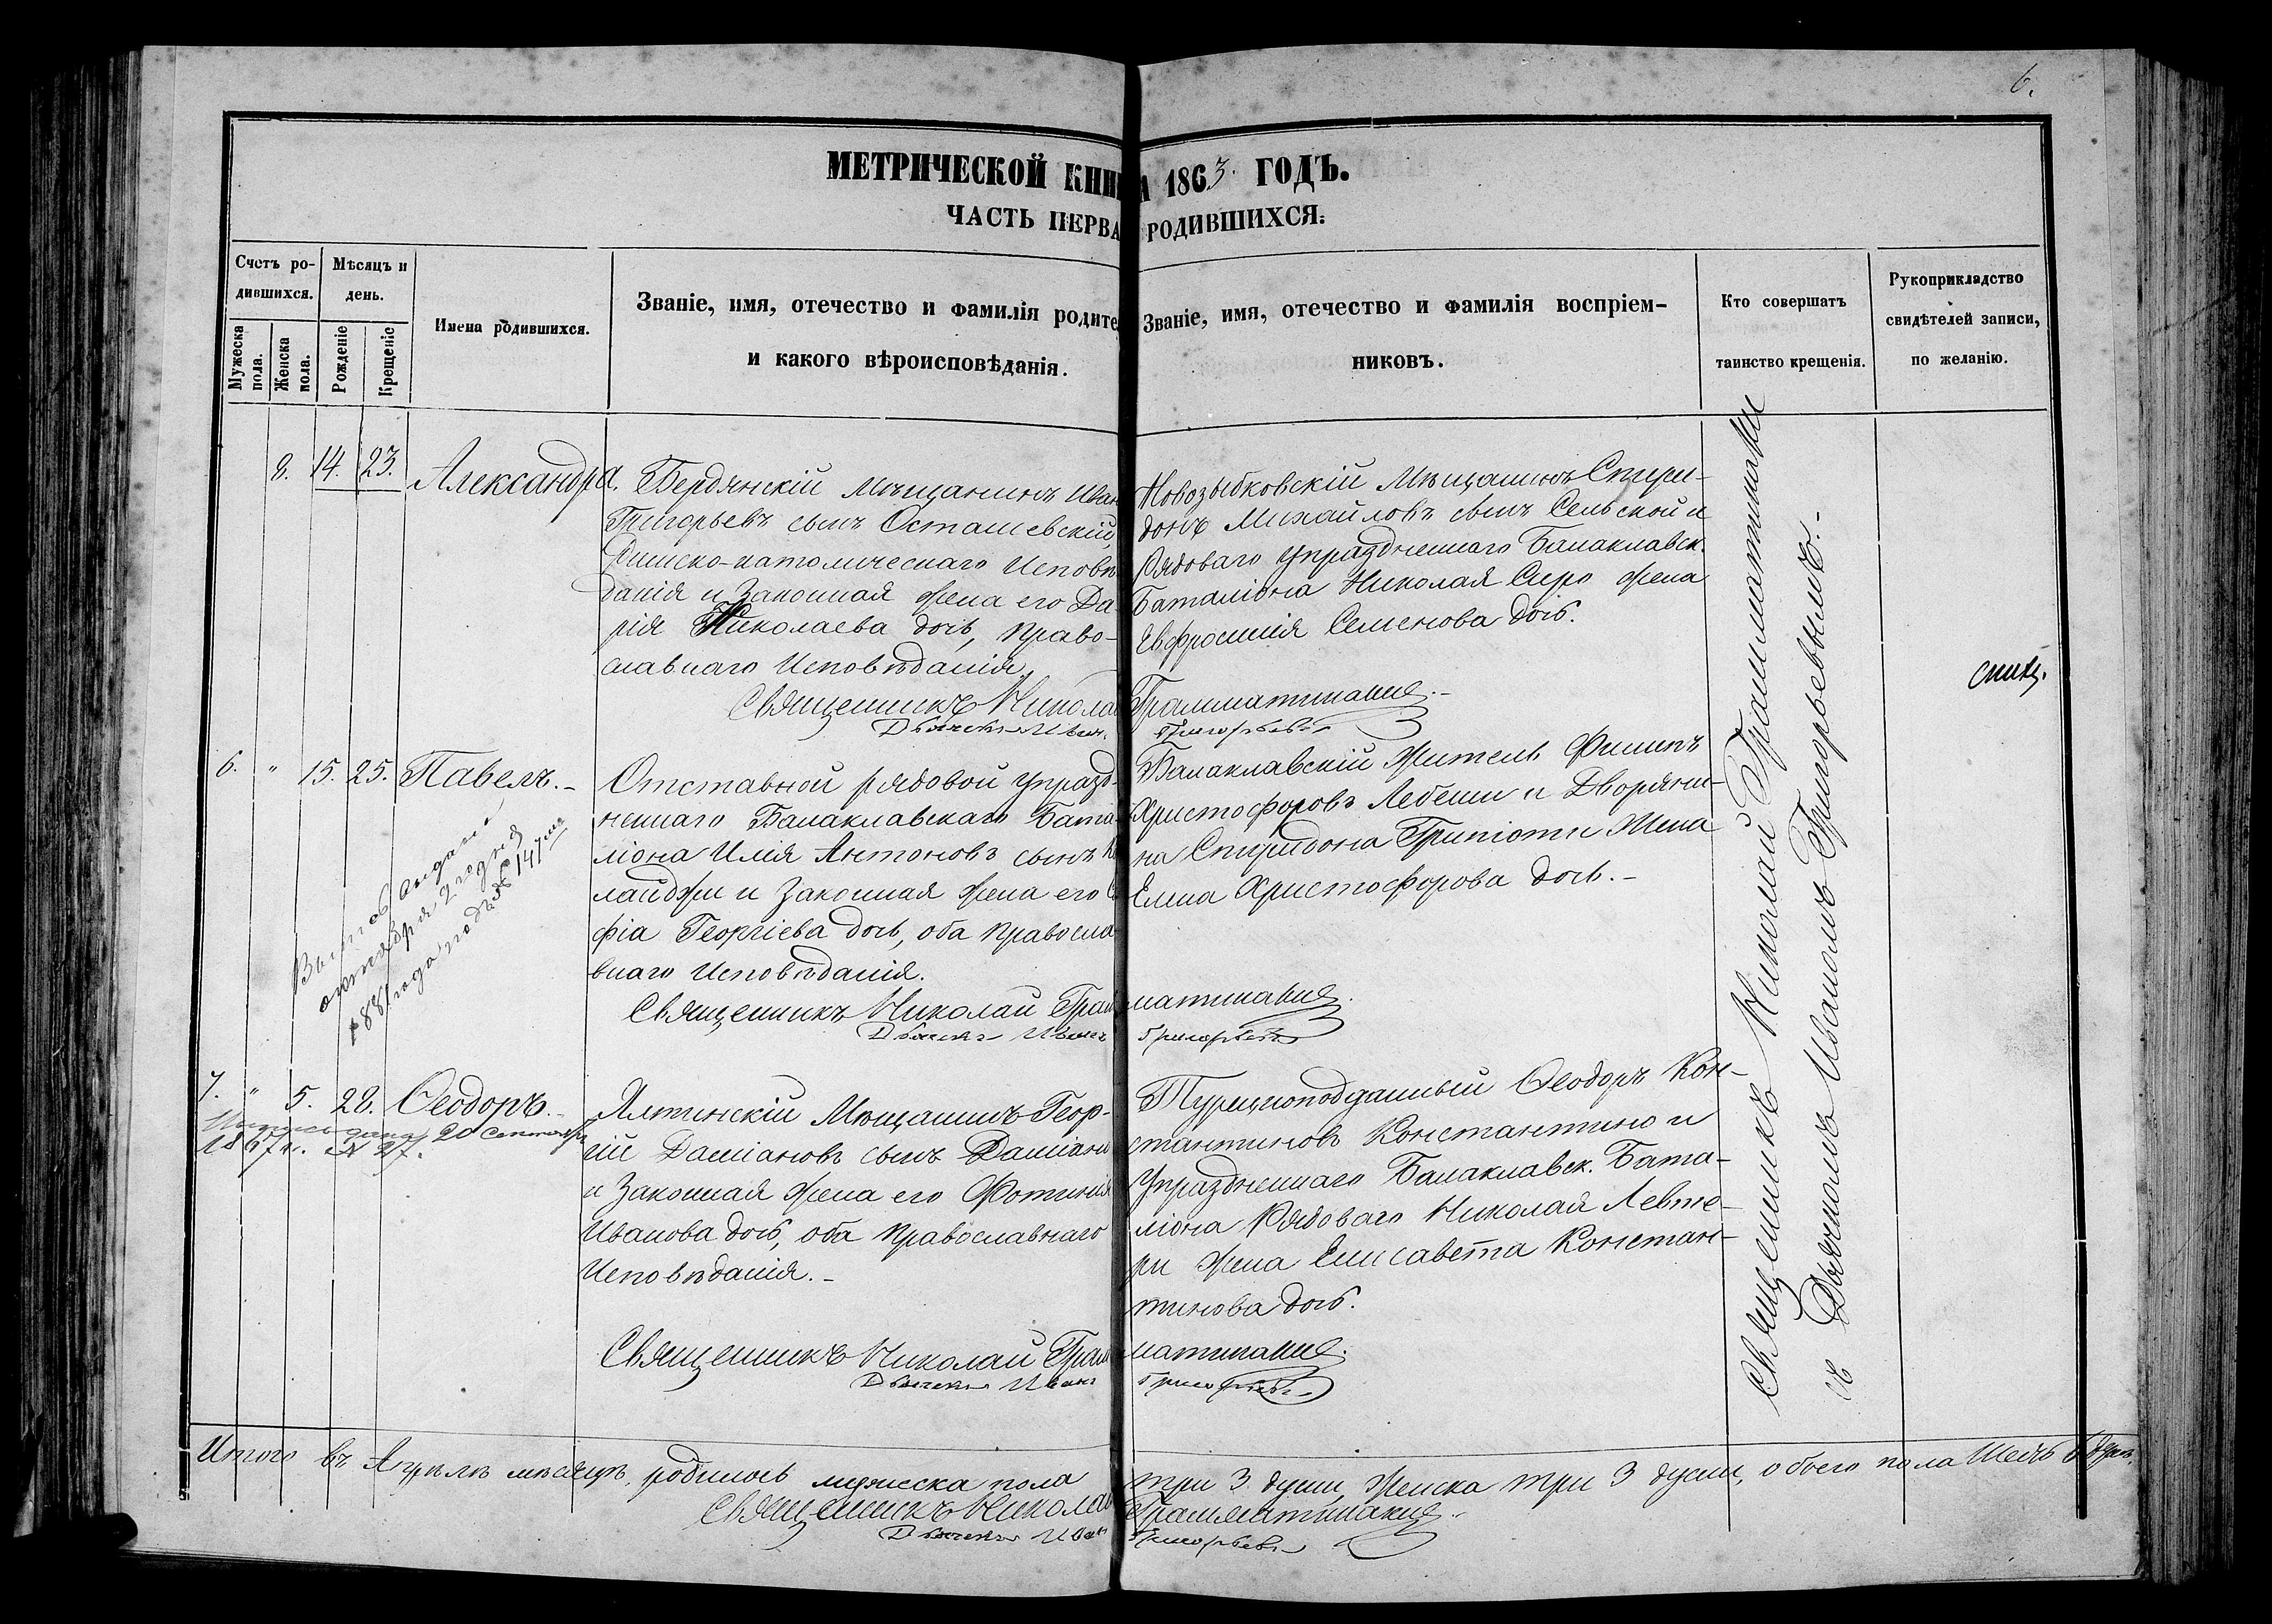 6.
МЕТРИЧЕСКОЙ КНИ
А 1863. ГОДЪ.
ЧАСТЬ ПЕРВА
РОДИВШИХСЯ.
Счетъ ро-
дившихся.
Мужеска
пола.
Женска
пола.
Мѣсяцъ и
день.
Рожденіе
Крещеніе
Имена родившихся.
Званіе, имя, отечество и фамилія родите
и какого вѣроисповѣданія.
Званіе, имя, отечество и фамилія воспріем-
никовъ.
Кто совершатъ
таинство крещенія.
Рукоприкладство
свидѣтелей записи,
по желанію.
8. 14. 23. Александра.
Бердянскій мѣщанинъ Иван
Григорьевъ сынъ Осташевскій,
Римско-католическаго Исповѣ
данія и Законная жена его Да
рія Николаева дочь, Право-
славнаго Исповѣданія.
Священникъ Никола
Дьячекъ Иван.
Новозыбковскій Мѣщанинъ Спири-
донъ Михайловъ сынъ Сельской и
Рядоваго упраздненнаго Балаклавск.
Баталіона Николая Сиро жена
Евфросинія Семенова дочь.
Грамматикакис.-
Григорьевъ
6. " 15. 25. Павелъ.-
Отставной рядовой упразд-
неннаго Балаклавскаго Бата
ліона Илія Антоновъ сынъ К
лайджи и Законная жена его С
фіа Георгіева дочь, оба Правосла
внаго Исповѣданія.
Священникъ Николай Грам
Дьячекъ Иванъ
Балаклавскій житель Филипъ
Христофоровъ Лебеши и Дворяни-
на Спиридона Грипіоти Жена
Елена Христофорова дочь.-
матикакис.
Григорьевъ
октября 2го дня
1881 года подъ № 147мъ
7. " 5. 28. Ѳеодоръ.-
20 Сентября
1867 г. № 27.
Ялтинскій Мѣщанинъ Геор-
гій Даміановъ сынъ Даміани
и Законная жена его Фотинія
Иванова дочь, оба Православнаго
Исповѣданія.-
Священникъ Николай Грам
Дьячекъ Иванъ
Турецкоподданный Ѳеодоръ Кон-
стантиновъ Константино и
Упраздненнаго Балаклавск. Бата-
ліона Рядоваго Николая Левте-
ри жена Елисавета Констан-
тинова дочь.
матикакис.
Григорьевъ
Священникъ Николай Грамматикаки
съ Дьячкомъ Иваномъ Григорьевымъ.-
Итого въ Апрѣлѣ мѣсяцѣ родилось мужеска пола
три 3 души, женска три 3 души, обоего пола Шесть 6 душъ.
Священникъ Никола
Грамматикакис.
Дьячекъ Иван
Григорьевъ